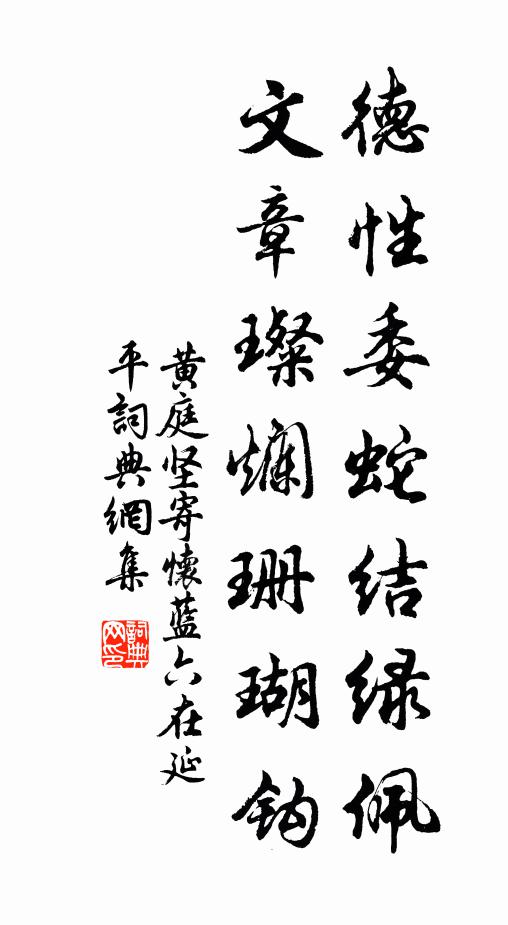 德性委蛇结绿佩
文章璨斓珊瑚钩
黄庭坚寄怀蓝六在延
平詞典網集
詞典网印